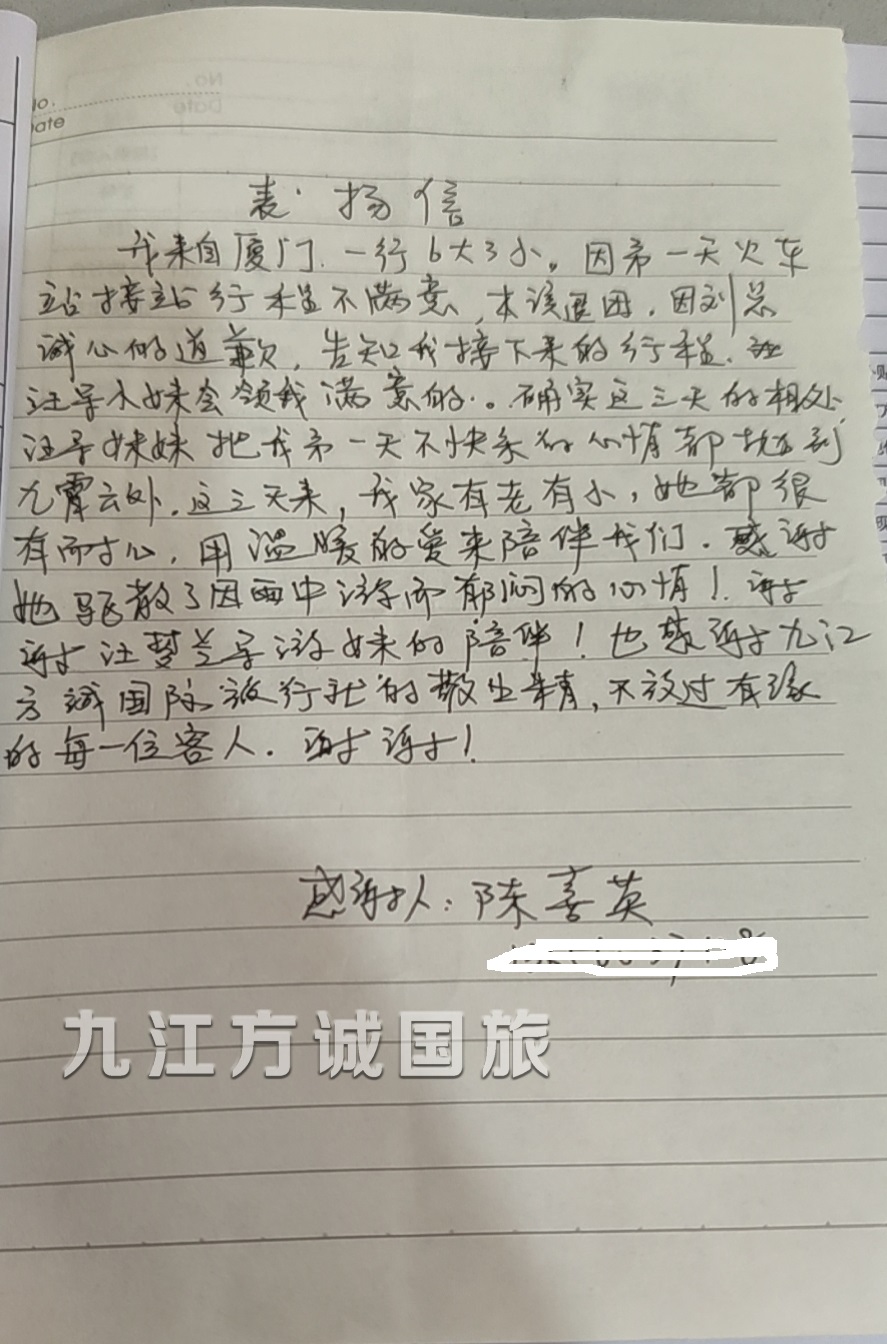 No.
Date
表扬信
我来自厦门.一行6大3小。因第一天火车
站接站行程不满意,本该退团.因刘总
诚心的道歉,告知我接下来的行程.
汪导小妹会领我满意的.。确实这三天的相处
汪导妹妹把我第一天不快乐的心情都抛到
九霄云外.这三天来,我家有老有小,她都很
有耐心,用温暖的爱来陪伴我们.感谢
她驱散了因雨中游而郁闷的心情!谢
谢汪梦兰导游妹的陪伴!也感谢九江
方诚国际旅行社的敬业精,不放过有缘
的每一位客人.谢谢!
感谢人:陈喜英
九江方诚国旅